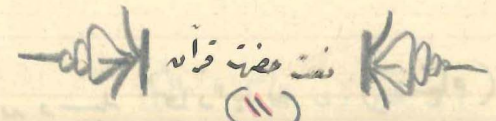 نعت حضرت قرآن
(۱۱)